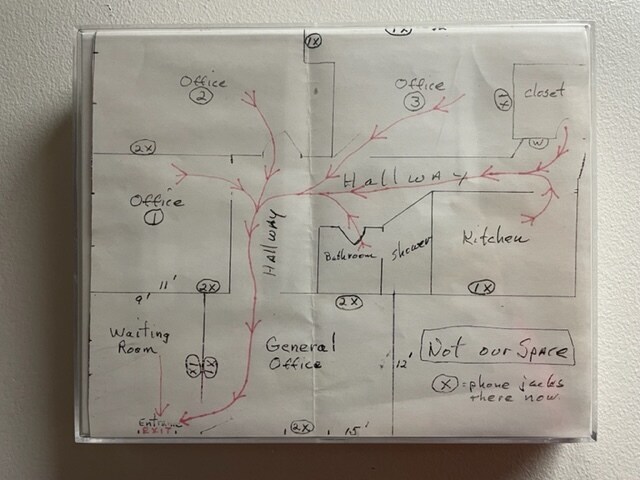 1X
1X
Office
2
Office
3
1X
closet
W
2X
Hallway
Office
1
Hallway
Bathroom
Shower
Kitchen
11'
9'
2X
2X
1X
Waiting
Room
General
Office
1X
1X
12'
Not our Space
X = phone jacks
there now.
Entrance
EXIT
2X
15'